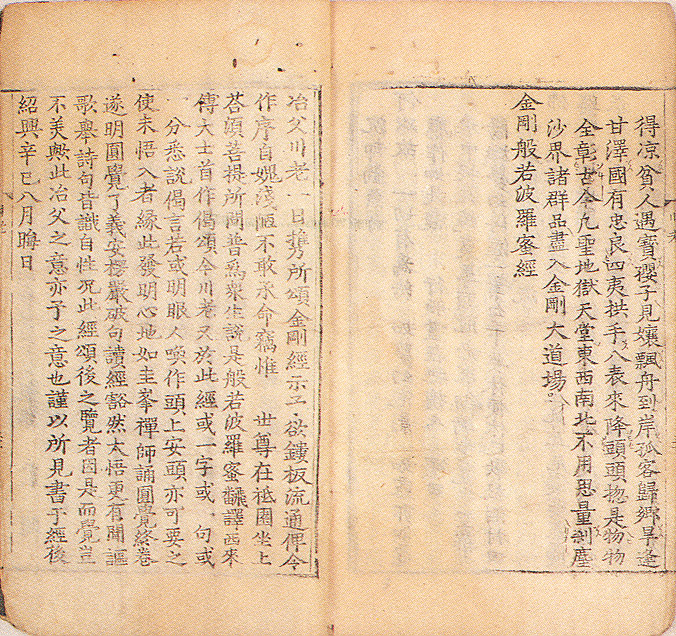 得凉貧人遇寶嬰子見孃飄舟到岸孤客歸鄉旱逢
甘澤國有忠良四夷拱手八表來降頭頭惣是物物
全彰古今凡聖地獄天堂東西南北不用思量刹塵
沙界諸群品盡入金剛大道場
金剛般若波羅蜜經
冶父川老一日携所頌金剛經示予欲鏤板流通俾令
作序自媿淺陋不敢承命竊惟世尊在祗園坐上
荅須菩提所問普爲衆生說是般若波羅蜜飜譯西來
傅大士首作偈頌今川老又於此經或一字或一句或
分悉說偈言若或明眼人喚作頭上安頭亦可要之
使未悟入者緣此發明心地如圭峯禪師誦圓覺終卷
遂明圓覺了義安楞嚴破句讀經豁然大悟更有聞謳
歌擧詩句皆識自性况此經頌後之覽者因是而覺豈
不美歟此冶父之意亦予之意也謹以所見書于經後
紹興辛巳八月晦日